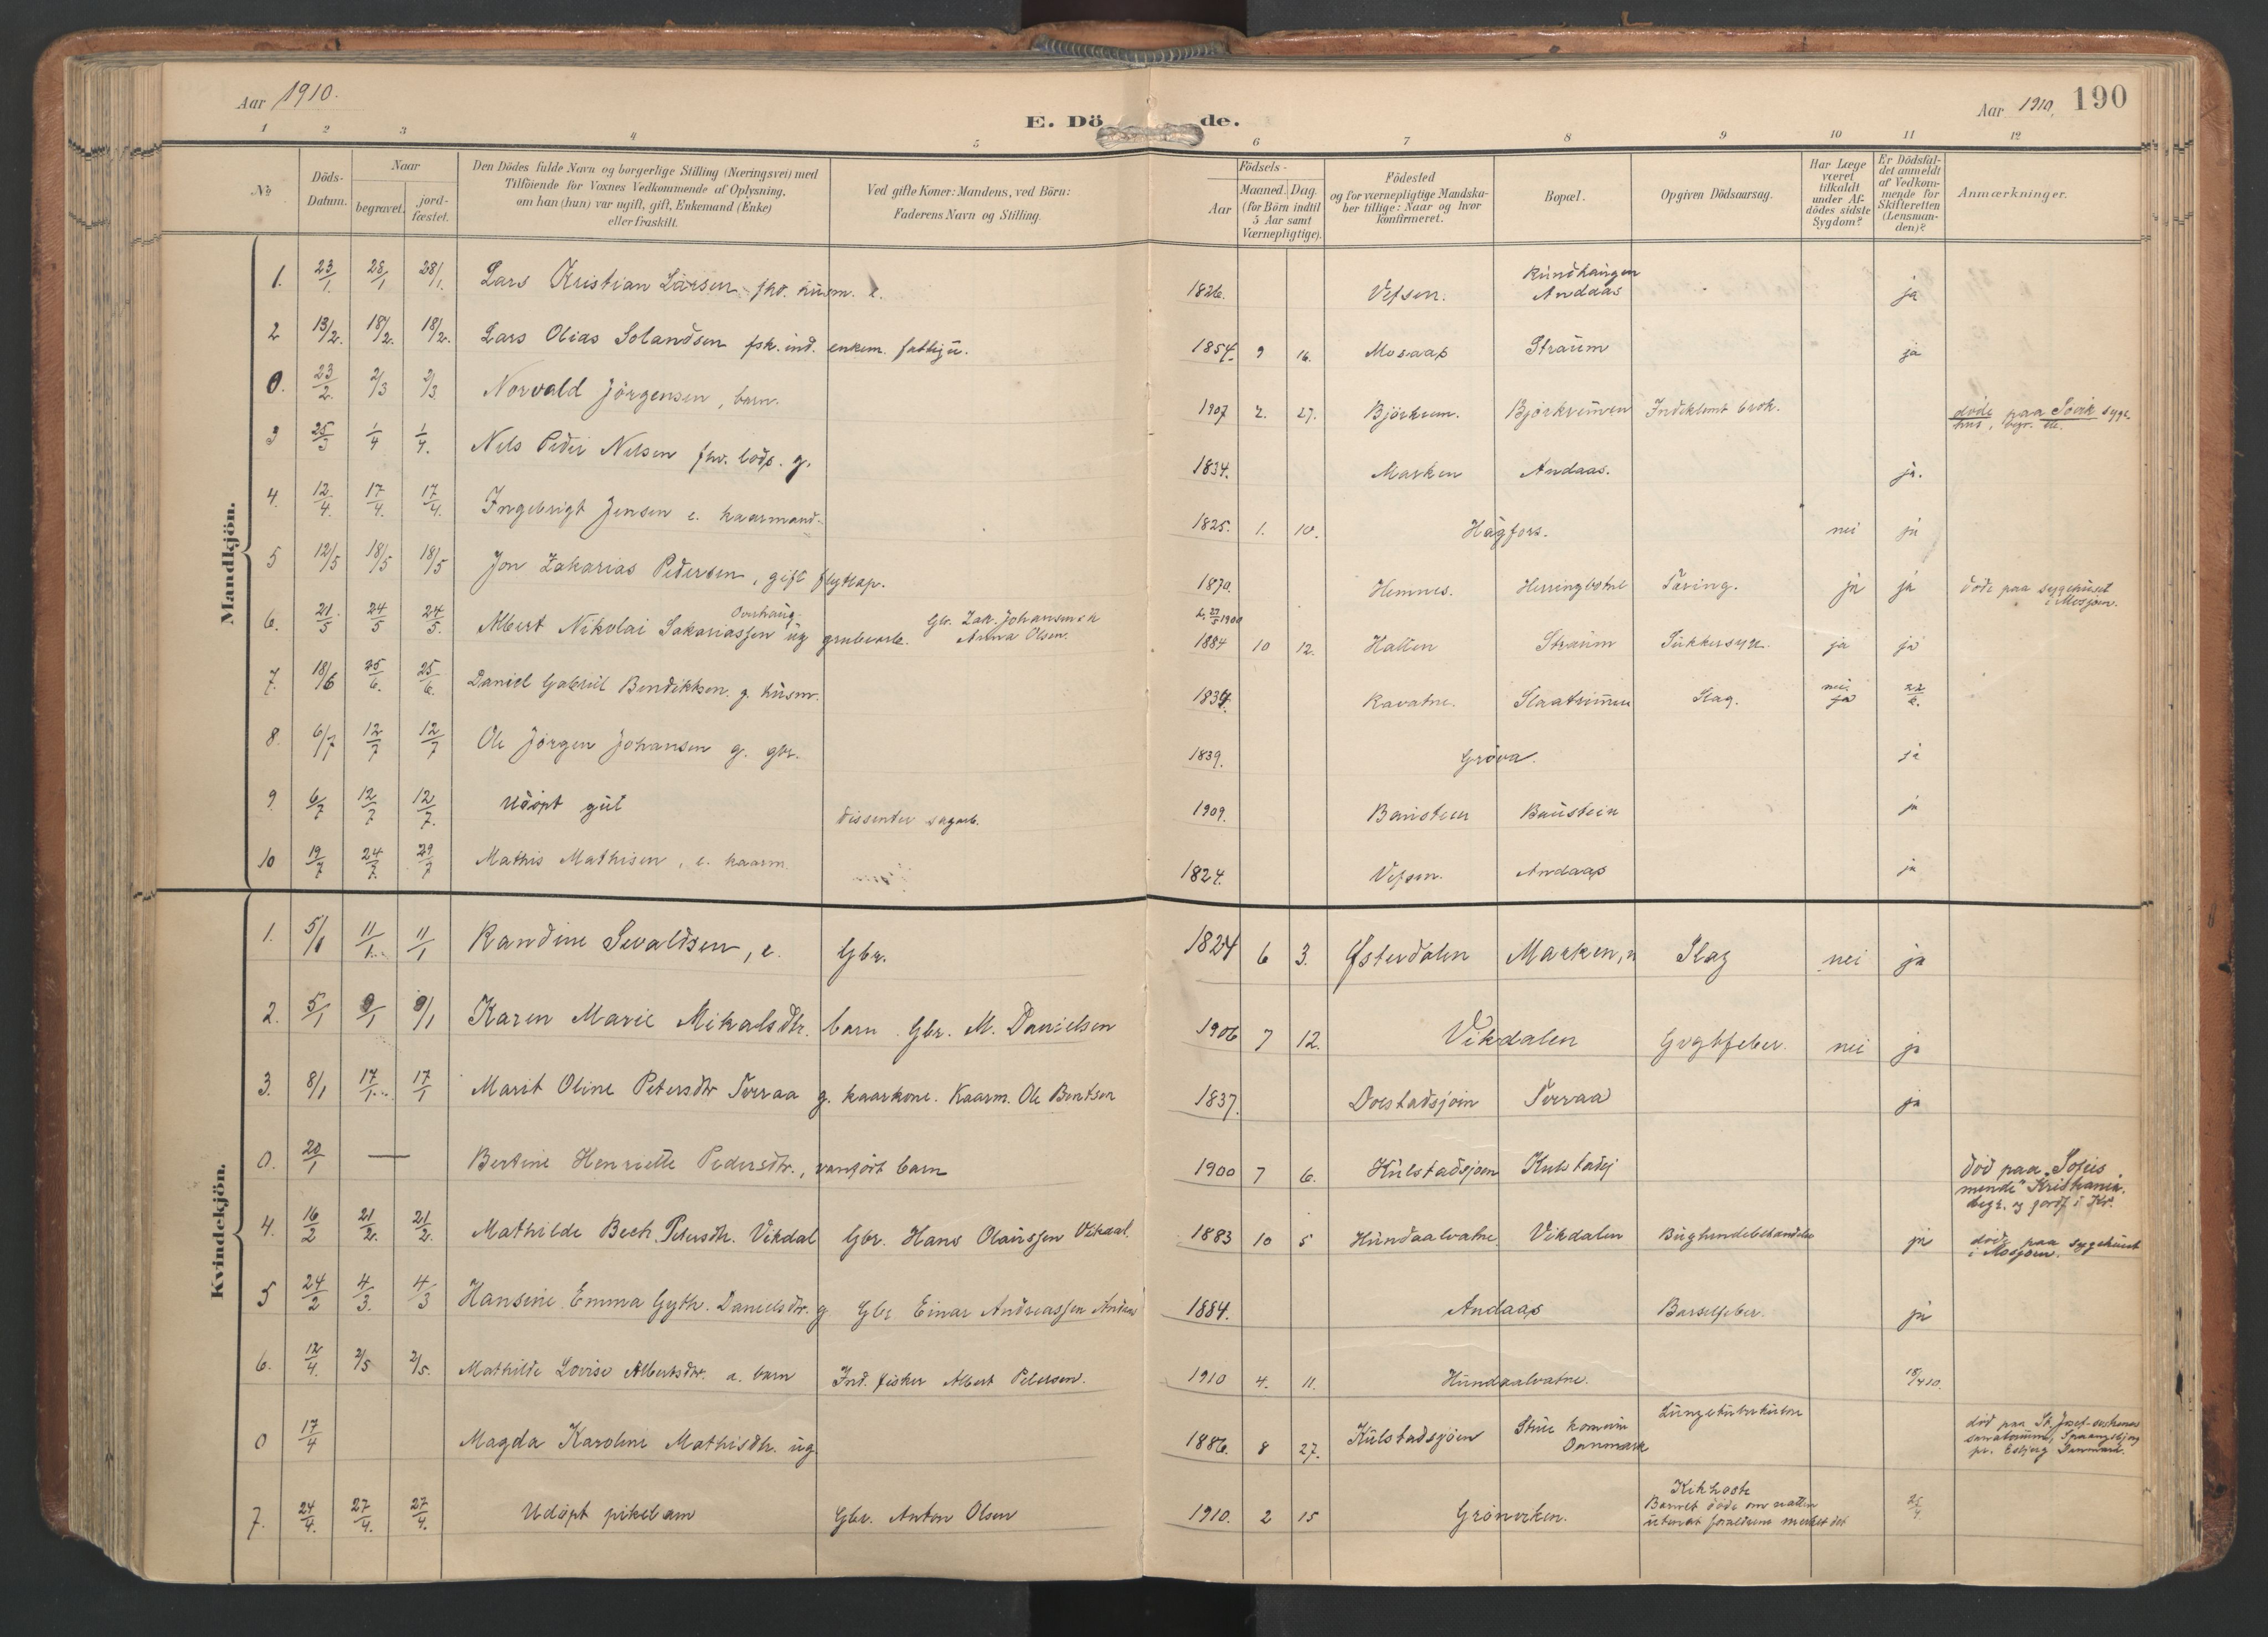 Aar 1910.
E. Döde.
Aar 1910. 190
1 2 3 4 5 6 7 8 9 10 11 12
No
Döds-Datum.
Naar
begravet.
jord-fæstet.
Den Dödes fulde Navn og borgerlige Stilling (Næringsvei) med
Tilföiende for Voxnes Vedkommende af Oplysning,
om han (hun) var ugift, gift, Enkemand (Enke)
eller fraskilt.
Ved gifte Koner: Mandens, ved Börn:
Faderens Navn og Stilling.
Födsels-
Aar
Maaned. Dag.
(for Börn indtil
5 Aar samt
Værnepligtige).
Födested
og for værnepligtige Mandska-
ber tillige: Naar og hvor
konfirmeret.
Bopæl.
Opgiven Dödsaarsag.
Har Læge
været
tilkaldt
under Af-
dödes sidste
Sygdom?
Er Dödsfal-
det anmeldt
af Vedkom-
mende for
Skifteretten
(Lensman-
den)?
Anmærkninger.
Mandkjön.
1. 23/1. 28/1 28/1. Lars Kristian Larsen fhv. husm. e. 1826. Vefsen. Andaas ja
2 13/2. 18/2. 18/2. Lars Olias enkem. 1854. 9 16. Mosaas Straum ja
0. 23/2. 2/3 2/3. Norvald Jörgensen, barn. 1907 2. 27. Björkmoen döde paa Sövik syge-
hus, begr. 
3 25/3 1/4 1/4. Nils Peder Nilsen fhv. g. 1834. Marken Andaas. ja.
4. 12/4. 17/4. 17/4. Ingebrigt Jensen e. kaarmand. 1825. 1. 10. Hagfors. nei ja
5 12/5 18/5 18/5 Jon Zakarias Pedersen, gift flytlap. 1870. Hemnes. Herringbotnet Tæring. ja ja döde paa sygehuset
i Mosjöen.
6. 21/5 24/5 24/5. Albert Nikolai Sakariassen ug grubearb. Gbr. Zak. Johansen &
Anna Olsen. 1884 10 12. Halten Straum Sukkersyge. ja ja
7. 18/6 25/6. 25/6. Daniel Gabriel Bendiksen. g. husm. 1834. Ravatne. Slag. nei ja
8. 6/7 12/7 12/7 Ole Jörgen Johansen g. gbr. 1839. Gröva. ja
9. 6/7 12/7 12/7. Udöpt gut dissenter sagarb. 1909. Baustein Baustein ja
10 19/7 24/7. 29/7 Mathis Mathisen, e. kaarm. 1824. Vefsen. Andaas ja
Kvindekjön.
1. 5/1 11/1. 11/1 Randine Sivaldsen, e. Gbr. 1824 6 3. Østerdalen Marken, Slag nei ja
2. 5/1 9/1 9/1 Karen Marie Mikalsdtr. barn Gbr. M. Danielsen 1906 7 12. Vikdalen Gigtfeber. nei ja
3. 8/1 17/1. 17/1 Marit Oline Petersdtr Terraa g. kaarkone. Kaarm. Ole Bentsen 1837. Dolstadsjoin Terraa ja
0. 20/1 — Bertine Henriette Pedersdtr., vanfört barn 1900 7 6. Kulstadsjoen Kulstadsj död paa "Sofies
minde" Kristiania.
begr. og jordf. i Kr.
4. 16/2 21/2. 21/2. Mathilde Bech Petersdtr. Vikdal Gbr. Hans Olaussen Vikdal. 1883 10 5 Hundaalvatne. Vikdalen Bughindebetændelse ja döde paa sygehuset
i Mosjöen.
5 24/2 4/3. 4/3 Hansine Emma Gyth. Danielsdtr. g Gbr Einar Andreassen Andaas 1884. Andaas Barselfeber. ja
6. 12/4. 2/5 2/5. Mathilde Lovise Albertsdtr. a. barn Ind. fisker Albert Petersen. 1910 4. 11. Hundaalvatne. 18/4 10.
0 17/4 Magda Karoline Mathisdtr. ug 1886. 8 27. Kulstadsjöen kommune
Danmark Lungetuberkulose död paa St. Josef-søstrenes
sanatorium,
pr. Esbjerg Danmark.
7. 24/4. 27/4. 27/4. Udöpt pikebarn Gbr. Anton Olsen 1910. 2 15 Grönviken. Kikhoste
Barnet döde om natten
uten at forældrene merket det